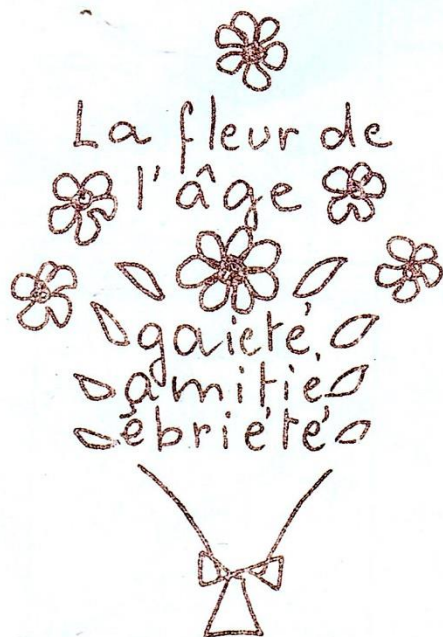 La fleur de
l'âge
gaieté,
amitié
ébriété